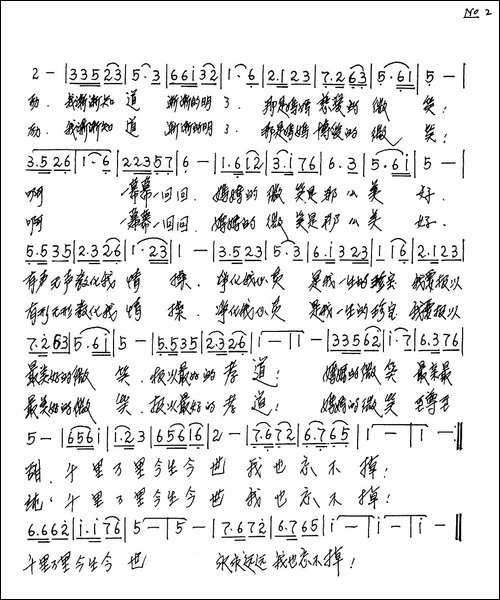 No 2
2 - | 3 3 5 2 3 | 5 · 3 | 6 6 i 3 2 | 1 · 6 | 2. 1 2 3 | 7. 2 6 3 | 5 · 6 1 | 5 - |
动. 我渐渐知 道 渐渐的明 了. 那是妈妈 慈爱的 微 笑:
动. 我渐渐知 道 渐渐的明 了. 那是妈妈 的 微 笑:
3. 5 2 6 | 1 · 6 | 2 2 3 5 7 | 6 - | 1. 6 1 2 | 3. i 7 6 | 6. 3 | 5. 6 i | 5 - |
啊 一幕幕一回回. 妈妈的 微 笑是 那 么 美 好.
啊 一幕幕一回回. 妈妈的 微 笑是 那 么 美 好.
5. 5 3 5 | 2. 3 2 6 | 1 · 2 3 | 1 - | 3. 5 2 3 | 5 · 3 | 6. i 3 2 3 | 1 1 6 | 2. 1 2 3 |
有声无声教化我 情 操. 净化我心灵 是我一生的 我要报以
有形无形教化我 情 操. 净化我心灵 是我一生的 我要报以
7. 2 6 3 | 5. 6 i | 5 - | 5. 5 3 5 | 2. 3 2 6 | 1 - | 1 - | 3 3 5 6 2 | i · 7 | 6. 3 7 6 |
最美好的微 笑. 报以最好的 孝 道: 妈妈的微 笑 最亲最
最美好的微 笑. 报以最好的 孝 道: 妈妈的微 笑 至尊至
5 - | 6 5 6 i | 1. 2 3 | 6 5 6 1 6 | 2 - | 7. 6 7 2 | 6. 7 6 5 | 1 - | 1 - :‖
甜. 千 里 万 里 今生今 世 我 也 忘 不 掉:
纯. 千 里 万 里 今生今 世 我 也 忘 不 掉:
6. 6 6 2 | i. i 7 6 | 5 - | 5 - | 7. 6 7 2 | 6. 7 6 5 | i - | i - | i - ‖
千里万里今生今 世 永永远远 我也忘不掉!